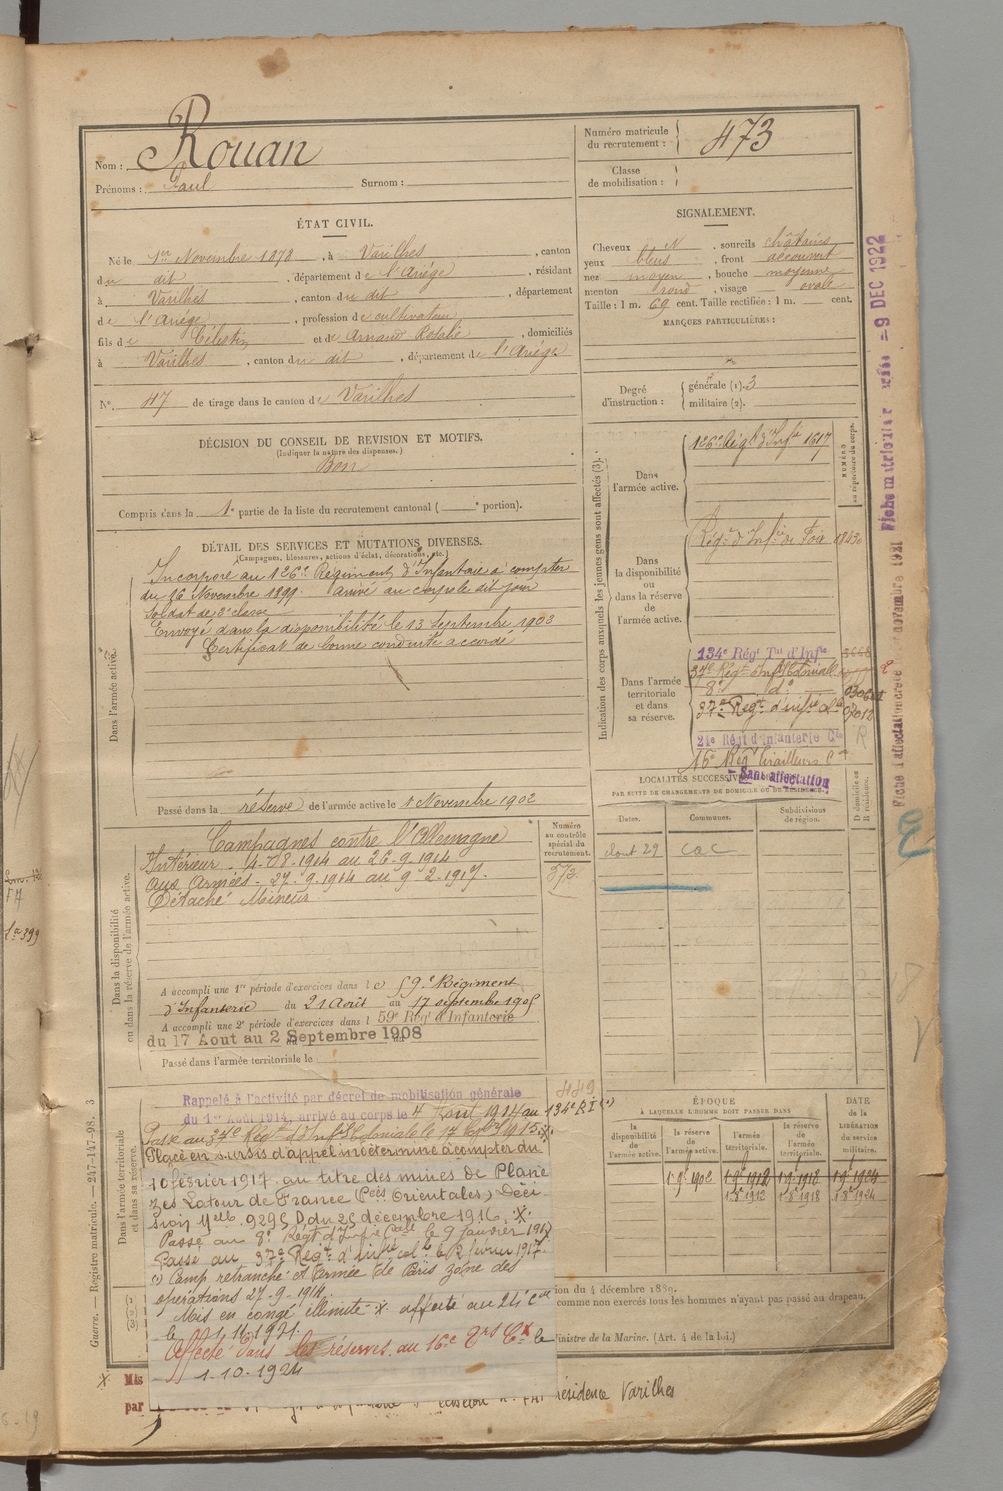 Nom : Rouan
Prénoms : Paul Surnom :
Numéro matricule du recrutement : 473
Classe de mobilisation :
ÉTAT CIVIL.
Né le 1er Novembre 1878, à Varilhes, canton
du dit, département de l'Ariége, résidant
à Varilhes, canton du dit, département
de l'Ariége, profession de cultivateur
fils de Célestin et de Arnaud Rosalie, domiciliés
à Varilhes, canton du dit, département de l'Ariége
N° 47 de tirage dans le canton de Varilhes
SIGNALEMENT.
Cheveux N, sourcils châtains
yeux bleus, front découvert
nez moyen, bouche moyenne
menton rond, visage ovale
Taille : 1 m. 69 cent. Taille rectifiée : 1 m. cent.
MARQUES PARTICULIÈRES :
Degré d'instruction : générale (1). 3
militaire (2).
DÉCISION DU CONSEIL DE REVISION ET MOTIFS.
(Indiquer la nature des dispenses.)
Bon
Compris dans la 1e partie de la liste du recrutement cantonal ( e portion).
DÉTAIL DES SERVICES ET MUTATIONS DIVERSES.
(Campagnes, blessures, actions d'éclat, décorations, etc.)
Dans l'armée active.
Incorporé au 126e Régiment d'Infanterie à compter
du 16 Novembre 1899. Arrivé au corps le dit jour
Soldat de 2e classe
Envoyé dans la disponibilité le 13 Septembre 1902
Certificat de bonne conduite accordé
Passé dans la réserve de l'armée active le 1 Novembre 1902
Indication des corps auxquels les jeunes gens sont affectés (3).
NUMÉRO au répertoire du corps.
Dans l'armée active.
126e Régt d'Infie 1617
Dans la disponibilité ou dans la réserve de l'armée active.
Régt d'Infie de Foix
Dans l'armée territoriale et dans sa réserve.
134e Régt Tal d'Infie
37e Régt d'Inf Coloniale
8e do
37e Régt d'infie Cle 07012
21e Régt d'Infanterie Cle
16e Régt Tirailleurs
Sans affectation
Dans la disponibilité ou dans la réserve de l'armée active.
Campagnes contre l'Allemagne
Intérieur - 4-08-1914 au 26-9-1914
Aux Armées - 27-9-1914 au 9-2-1917.
Détaché Mineur
Numéro au contrôle spécial du recrutement.
373
A accompli une 1re période d'exercices dans le 59e Régiment
d'Infanterie du 21 Août au 17 septembre 1905
A accompli une 2e période d'exercices dans l 59e Régt d'Infanterie
du 17 Aout au 2 Septembre 1908
Passé dans l'armée territoriale le
LOCALITÉS SUCCESSIVES
PAR SUITE DE CHANGEMENTS DE DOMICILE OU DE RÉSIDENCE.
Dates. Communes. Subdivisions de région. D domicile ou R résidence.
Aout 29
Dans l'armée territoriale et dans sa réserve.
449
Rappelé à l'activité par décret de mobilisation générale
du 1er Août 1914, arrivé au corps le 4 Aout 1914 au 134e R I (1)
Passé au 37e Régt d'Inf Coloniale le 17
Placé en sursis d'appel indéterminé à compter du
10 février 1917. au titre des mines de
Latour de France (Pées Orientales) Déci
sion Melle 9295 D du 25 décembre 1916.
Passé au 8e Régt d'Infie Cale le 9 janvier 1917
Passé au 37e Régt d'infie colle le 12 février 1917.
(1) Camp retranché et Armée de Paris zone des
opérations 27-9-1914.
Mis en congé illimité affecté au 24e
le 1.11.1921.
Affecté dans les réserves au 16e
1-10-1924
ÉPOQUE
À LAQUELLE L'HOMME DOIT PASSER DANS
la disponibilité de l'armée active.
la réserve de l'armée active.
l'armée territoriale.
la réserve de l'armée territoriale.
DATE de la LIBÉRATION du service militaire.
1-9e 1902 1-9e 1912 1-9e 1918 1-9e 1924
1-8e 1912 1-8e 1918 1-8e 1924
ion du 4 décembre 1889.
comme non exercés tous les hommes n'ayant pas passé au drapeau.
inistre de la Marine. (Art. 4 de la loi.)
Mis
par
résidence Varilhes
Guerre. — Registre matricule. — 247-147-98. 3
9 DEC 1922
Fiche matricule
novembre 1921